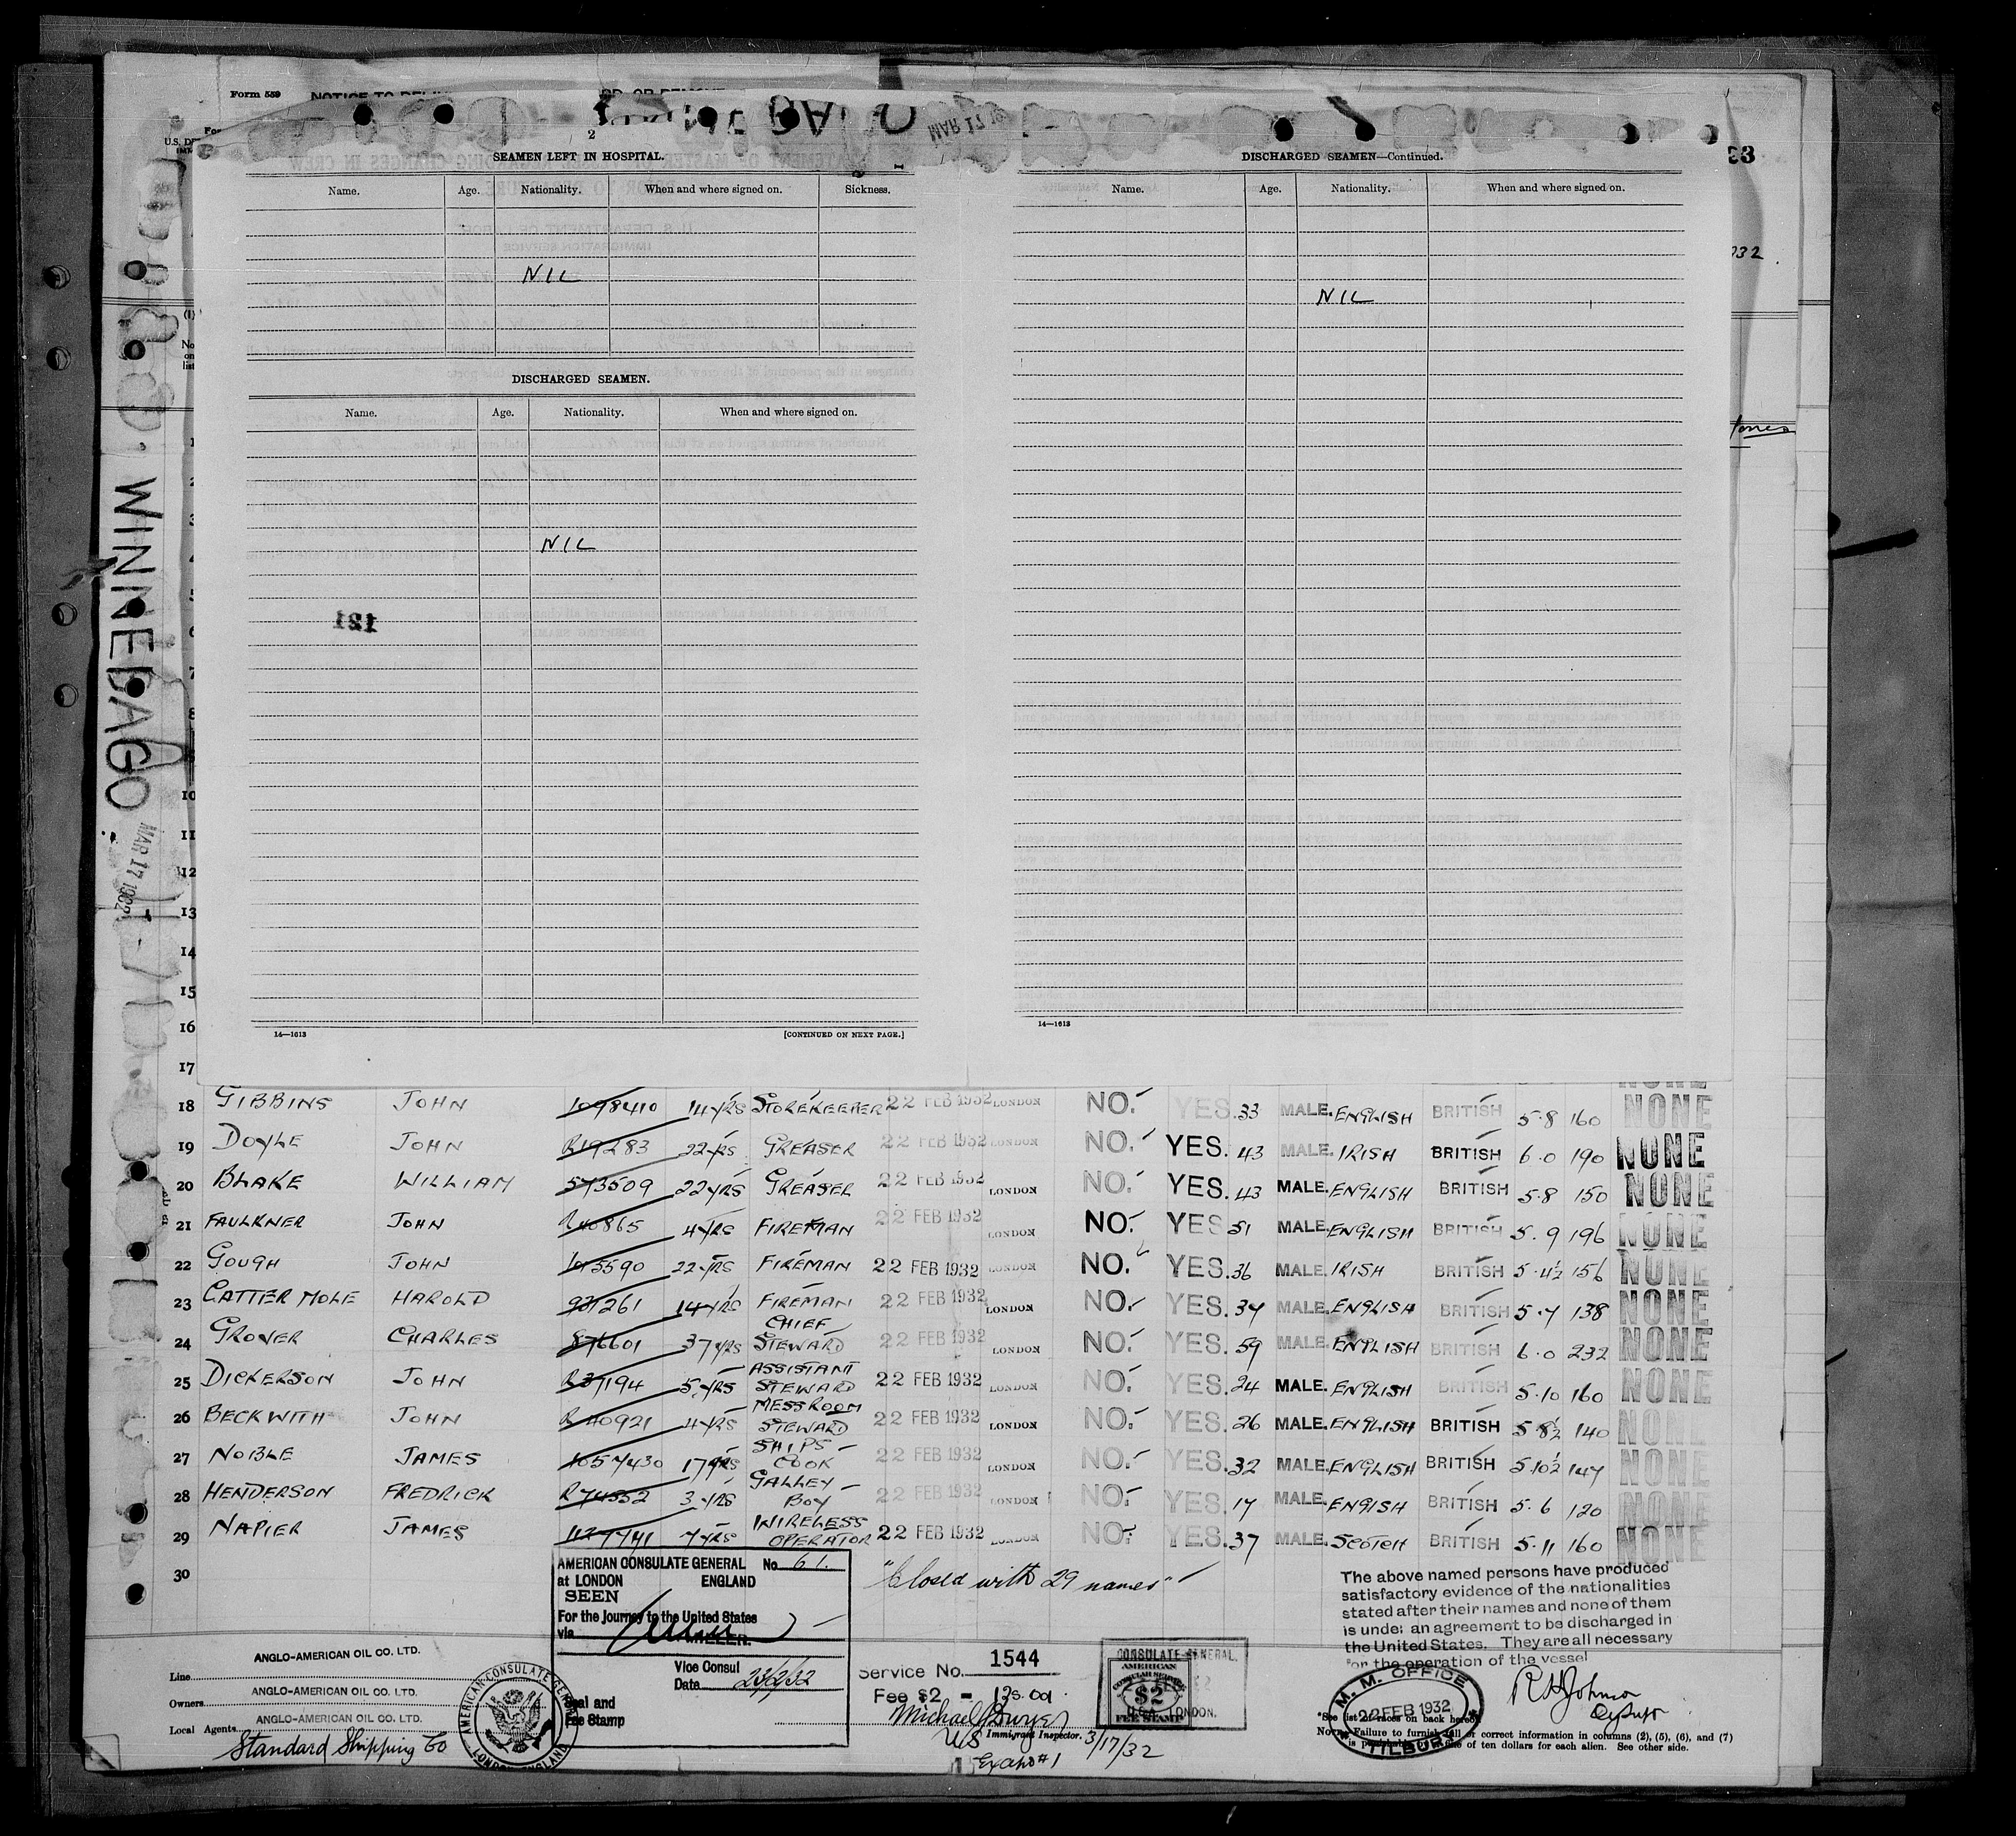 Form 559
2
MAR 17 19
SEAMEN LEFT IN HOSPITAL.
Name. Age. Nationality. When and where signed on. Sickness.
NIL
DISCHARGED SEAMEN.
Name. Age. Nationality. When and where signed on.
NIL
181
14—1613 [CONTINUED ON NEXT PAGE.]
DISCHARGED SEAMEN—Continued.
Name. Age. Nationality. When and where signed on.
NIL
14—1613
WINNEBAGO
MAR 17 1932
10
11
12
13
14
15
16
17
18 GIBBINS JOHN 1098410 14 YRS STOREKEEPER 22 FEB 1932 LONDON NO. YES. 33 MALE. ENGLISH BRITISH 5.8 160 NONE
19 DOYLE JOHN R19283 22 YRS GREASER 22 FEB 1932 LONDON NO. YES. 43 MALE. IRISH BRITISH 6.0 190 NONE
20 BLAKE WILLIAM 573509 22 YRS GREASER 22 FEB 1932 LONDON NO. YES. 43 MALE. ENGLISH BRITISH 5.8 150 NONE
21 FAULKNER JOHN R40865 4 YRS FIREMAN 22 FEB 1932 LONDON NO. YES 51 MALE. ENGLISH BRITISH 5.9 196 NONE
22 GOUGH JOHN 22 YRS FIREMAN 22 FEB 1932 LONDON NO. YES. 36 MALE. IRISH BRITISH 5.4½ 156 NONE
23 CATTERMOLE HAROLD 937261 14 YRS FIREMAN 22 FEB 1932 LONDON NO. YES. 37 MALE. ENGLISH BRITISH 5.7 138 NONE
24 GROVER CHARLES 876601 37 YRS CHIEF STEWARD 22 FEB 1932 LONDON NO. YES. 59 MALE. ENGLISH BRITISH 6.0 232 NONE
25 DICKERSON JOHN R37194 5 YRS ASSISTANT STEWARD 22 FEB 1932 LONDON NO. YES. 24 MALE. ENGLISH BRITISH 5.10 160 NONE
26 BECKWITH JOHN R40921 4 YRS MESSROOM STEWARD 22 FEB 1932 LONDON NO. YES. 26 MALE. ENGLISH BRITISH 5 8½ 140 NONE
27 NOBLE JAMES 1057430 17 YRS SHIPS COOK 22 FEB 1932 LONDON NO. YES. 32 MALE. ENGLISH BRITISH 5.10½ 147 NONE
28 HENDERSON FREDRICK R74552 3 YRS GALLEY BOY 22 FEB 1932 LONDON NO. YES. 17 MALE. ENGISH BRITISH 5.6 120 NONE
29 NAPIER JAMES 1127741 7 YRS WIRELESS OPERATOR 22 FEB 1932 LONDON NO. YES. 37 MALE. SCOTCH BRITISH 5.11 160 NONE
30
AMERICAN CONSULATE GENERAL No. 61.
at LONDON ENGLAND
SEEN
For the Journey to the United States
via
Vice Consul
Date 23/2/32
Seal and
Fee Stamp
"Closed with 29 names"
The above named persons have produced
satisfactory evidence of the nationalities
stated after their names and none of them
is under an agreement to be discharged in
the United States. They are all necessary
for the operation of the vessel
Line ANGLO-AMERICAN OIL CO. LTD.
Owners ANGLO-AMERICAN OIL CO. LTD.
Local Agents ANGLO-AMERICAN OIL CO. LTD.
Standard Shipping Co
AMERICAN CONSULATE GENERAL
LONDON, ENGLAND
Service No. 1544
Fee $2 =
Michael J Dwyer
US Immigrant Inspector. 3/17/32
CONSULATE GENERAL
AMERICAN
CONSULAR SERVICE
$2
FEE STAMP
LONDON.
M. M. OFFICE
22 FEB 1932
TILBURY
*See list of races on back hereof
Note.—Failure to furnish full or correct information in columns (2), (5), (6), and (7)
is punishable by a fine of ten dollars for each alien. See other side.